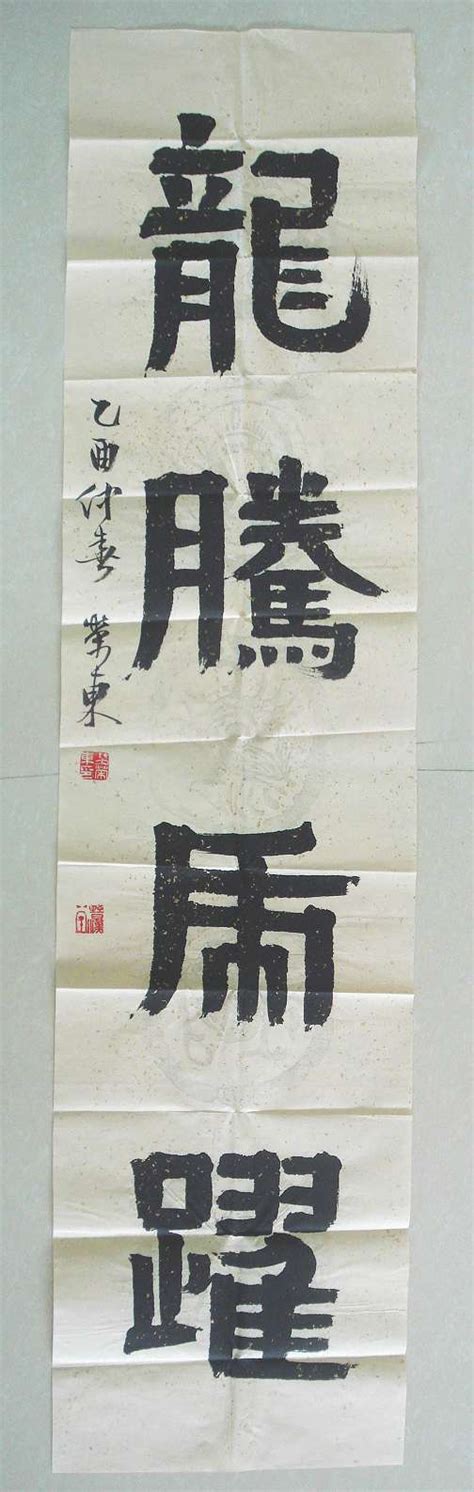 龍騰虎躍
乙酉仲春 榮東